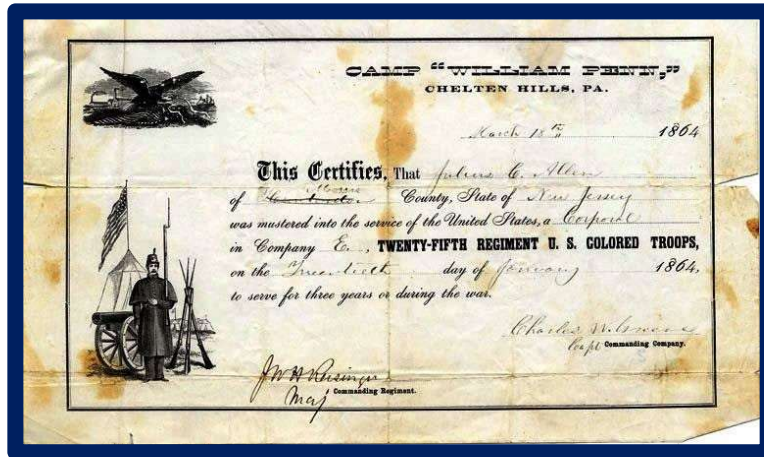 CAMP "WILLIAM PENN,"
CHELTEN HILLS, PA.
March 18th 1864
This Certifies, That Julius C. Allen
Morris
of County, State of New Jersey
was mustered into the service of the United States, a Corporal
in Company E., TWENTY-FIFTH REGIMENT U. S. COLORED TROOPS,
on the Twentieth day of January 1864,
to serve for three years or during the war.
Charles W.
Capt Commanding Company.
J W H Reisinger
Maj Commanding Regiment.